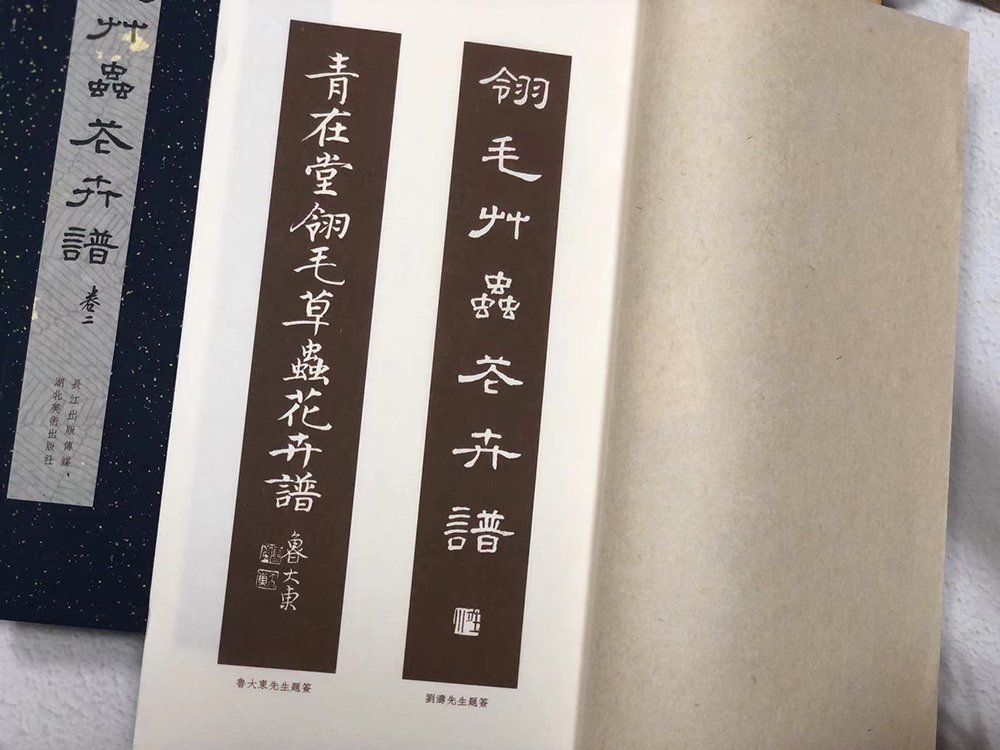 艸蟲芲卉譜
卷二
長江出版傳媒
湖北美術出版社
翎毛艸蟲芲卉譜
劉濤先生題簽
青在堂翎毛草蟲花卉譜
魯大東
魯大東先生題簽